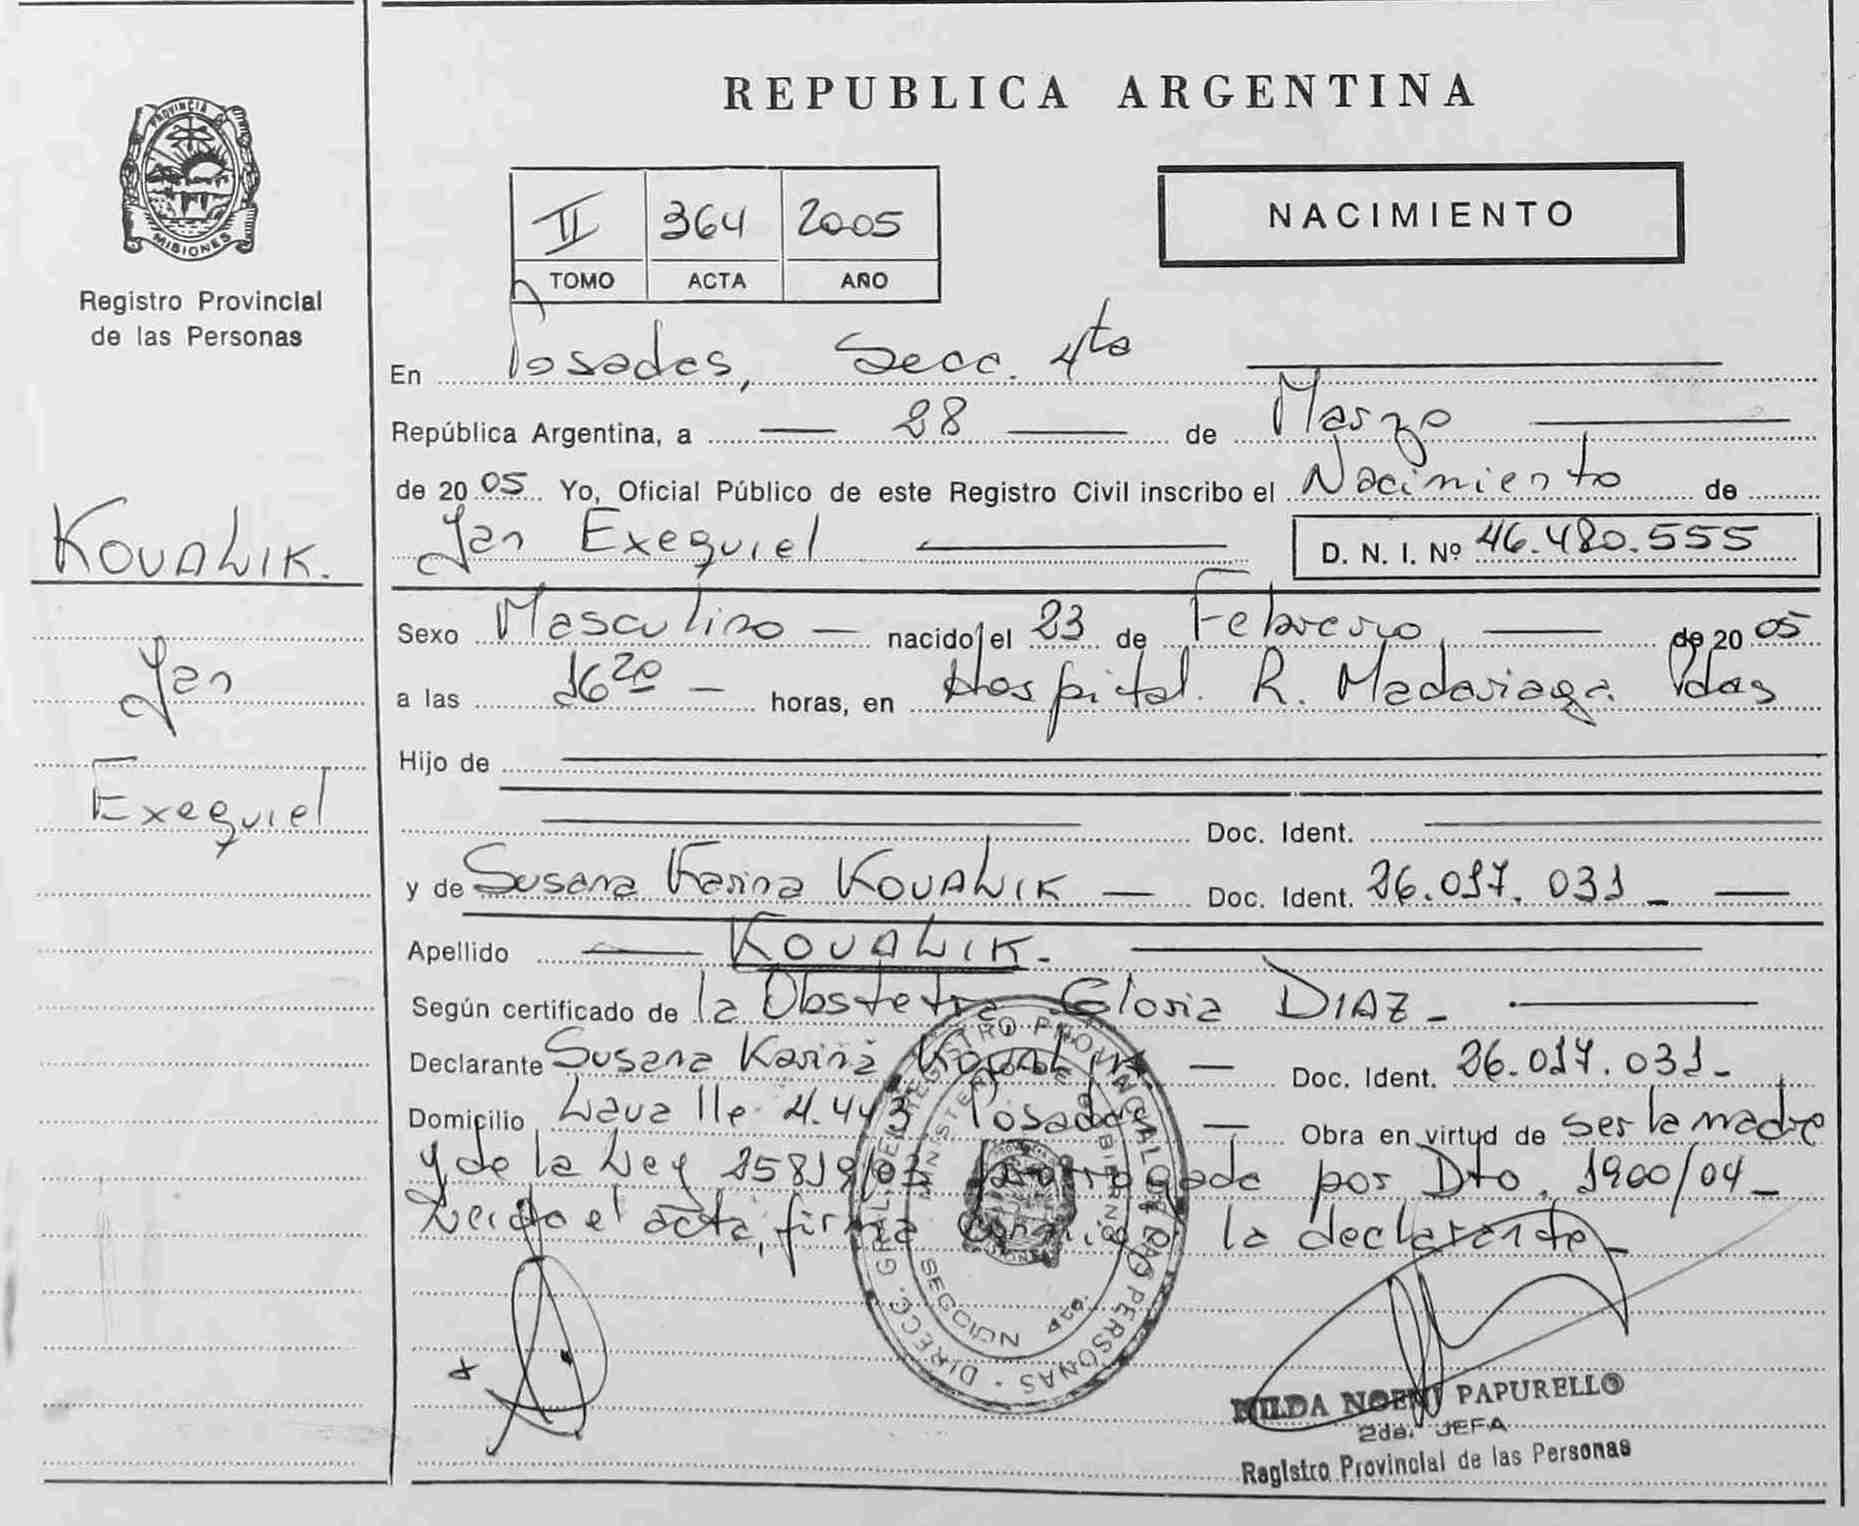 PROVINCIA DE
MISIONES
Registro Provincial
de las Personas
KOVALIK.
Jan
Exequiel
REPUBLICA ARGENTINA
II 364 2005
TOMO ACTA AÑO
NACIMIENTO
En Posadas, Secc. 4ta
República Argentina, a 28 de Marzo
de 2005 Yo, Oficial Público de este Registro Civil inscribo el Nacimiento de
Jan Exequiel D. N. I. Nº 46.480.555
Sexo Masculino nacido el 23 de Febrero de 2005
a las 16 20 horas, en Hospital R. Madariaga. Pdas
Hijo de
Doc. Ident.
y de Susana Karina KOVALIK Doc. Ident. 26.017.031
Apellido KOVALIK.
Según certificado de la Obstetra Gloria DIAZ
Declarante Susana Karina Kovalik Doc. Ident. 26.017.031
Domicilio Lavalle 4.443 Posadas Obra en virtud de ser la madre
y de la Ley 25819/03 prorrogada por Dto. 1900/04
Leido el acta, firma conmigo la declarante
DIREC. GRAL. DEL REGISTRO PROVINCIAL DE LAS PERSONAS
MINISTERIO DE GOBIERNO
SECCION 4ta.
NILDA NOEMI PAPURELLO
2da. JEFA
Registro Provincial de las Personas